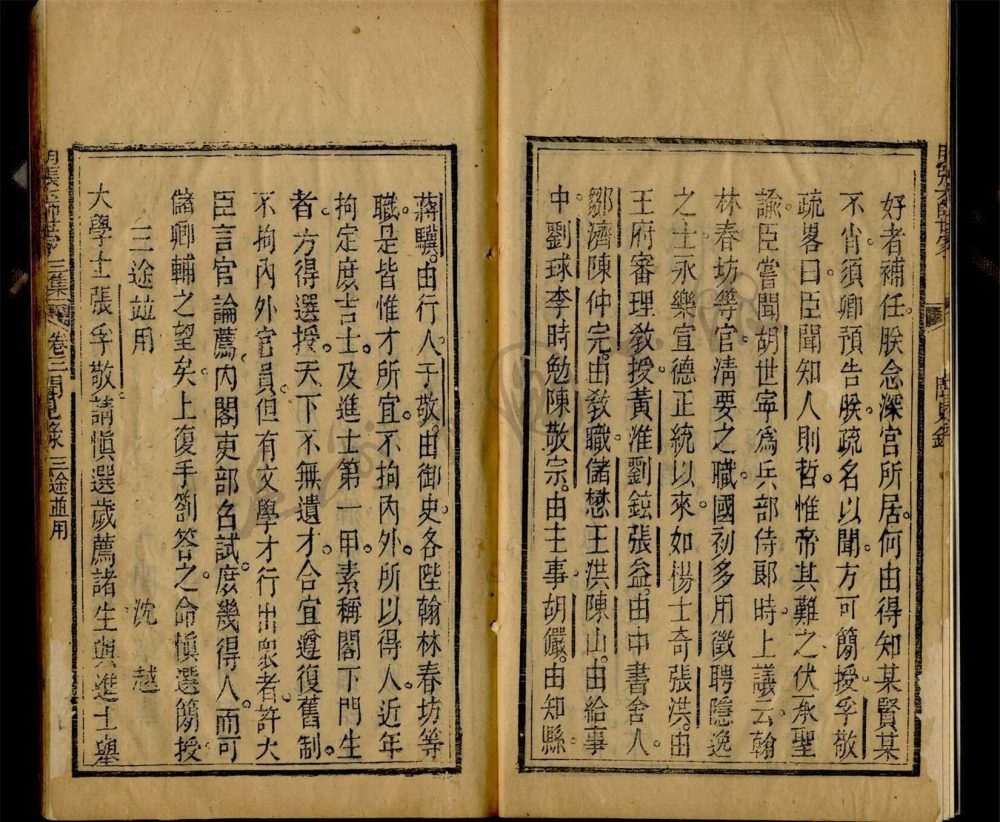 好者補任朕念深宮所居何由得知某賢某
不肖須卿預告朕疏名以聞方可簡授孚敬
疏畧曰臣聞知人則哲惟帝其難之伏承聖
諭臣嘗聞胡世寧爲兵部侍郞時上議云翰
林春坊等官淸要之職國初多用徵聘隱逸
之士永樂宣德正統以來如楊士奇張洪由
王府審理敎授黃淮劉鉉張益由中書舍人
鄒濟陳仲完由敎職儲懋王洪陳山由給事
中劉球李時勉陳敬宗由主事胡儼由知縣
蔣驥由行人于敬由御史各陞翰林春坊等
職是皆惟才所宜不拘內外所以得人近年
拘定庶吉士及進士第一甲素稱閣下門生
者方得選授天下不無遺才合宜遵復舊制
不拘內外官員但有文學才行出衆者許大
臣言官論薦內閣吏部名試庶幾得人而可
儲卿輔之望矣上復手劄答之命愼選簡授
三途並用 沈越
大學士張孚敬請愼選歲薦諸生與進士舉
三集 卷三聞見錄 三途並用